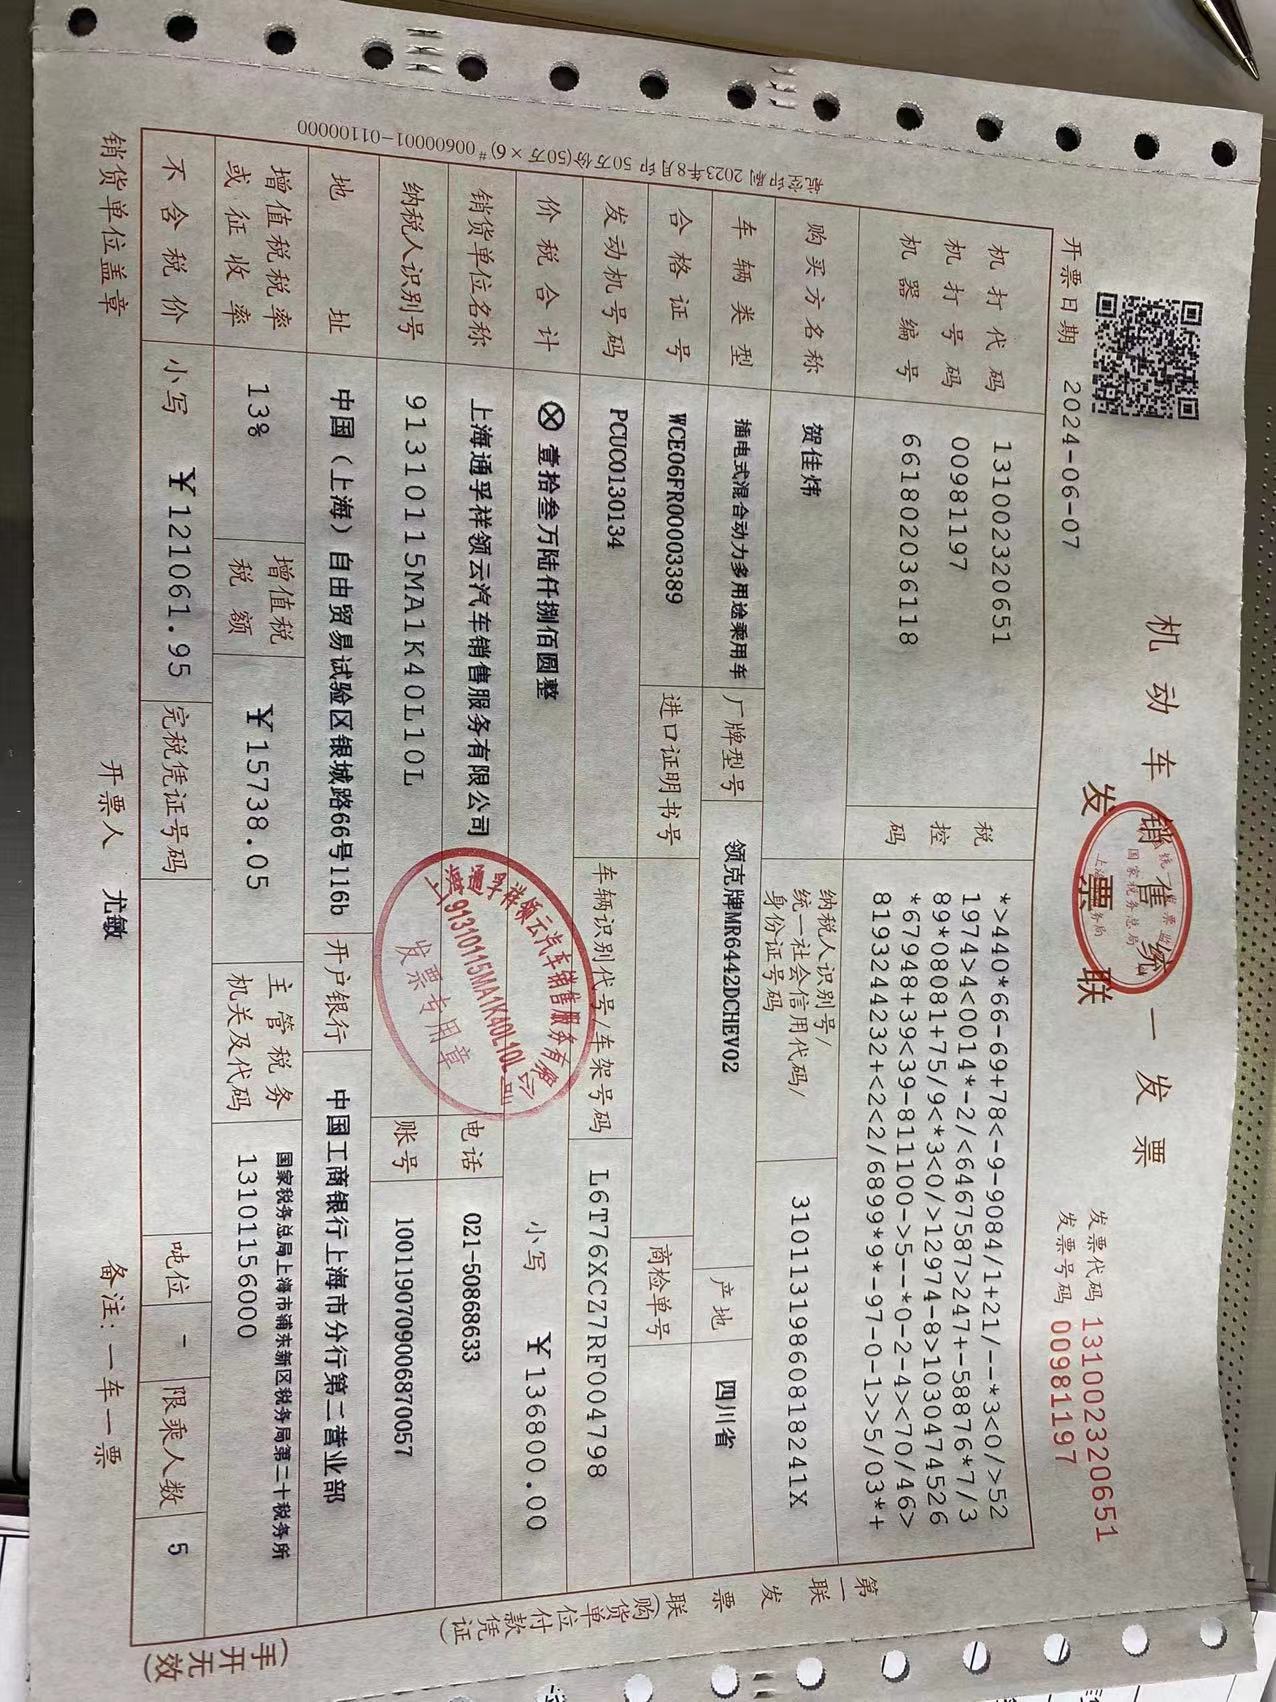 机动车销售统一发票
发票联
发票代码 131002320651
发票号码 00981197
开票日期 2024-06-07
机打代码 131002320651
机打号码 00981197
机器编号 661802036118
税控码
*>440*66-69+78<-9-9084/1+21/--*3<0/>52
1974>4<0014*-2/<6467587>247+-58876*7/3
89*08081+75/9<*3<0/>12974-8>1030474526
*67948+39<39-811100->5--*0-2-4><70/46>
819324423​2+<2<2/6899*9*-97-0-1>>5/03*+
购买方名称 贺佳炜
纳税人识别号/
统一社会信用代码/
身份证号码
31011319860818241X
车辆类型 插电式混合动力多用途乘用车 厂牌型号 领克牌MR6442DCHEV02 产地 四川省
合格证号 WCE06FR00003389 进口证明书号 商检单号
发动机号码 PCUC0130134 车辆识别代号/车架号码 L6T76XCZ7RF004798
价税合计 ⊗壹拾叁万陆仟捌佰圆整 小写 ￥136800.00
销货单位名称 上海通孚祥领云汽车销售服务有限公司 电话 021-50868633
纳税人识别号 91310115MA1K40L10L 账号 1001190709006870057
地址 中国（上海）自由贸易试验区银城路66号116b 开户银行 中国工商银行上海市分行第二营业部
增值税税率或征收率 13% 增值税税额 ￥15738.05 主管税务机关及代码 国家税务总局上海市浦东新区税务局第二十税务所
13101156000
不含税价 小写 ￥121061.95 完税凭证号码 吨位 - 限乘人数 5
销货单位盖章 开票人 尤敏 备注：一车一票
第一联 发票联(购货单位付款凭证)
(手开无效)
印刷 2023年8月印 50万份(50万×6)#00600001-01100000
上海通孚祥领云汽车销售服务有限公司
91310115MA1K40L10L
发票专用章
国家税务总局